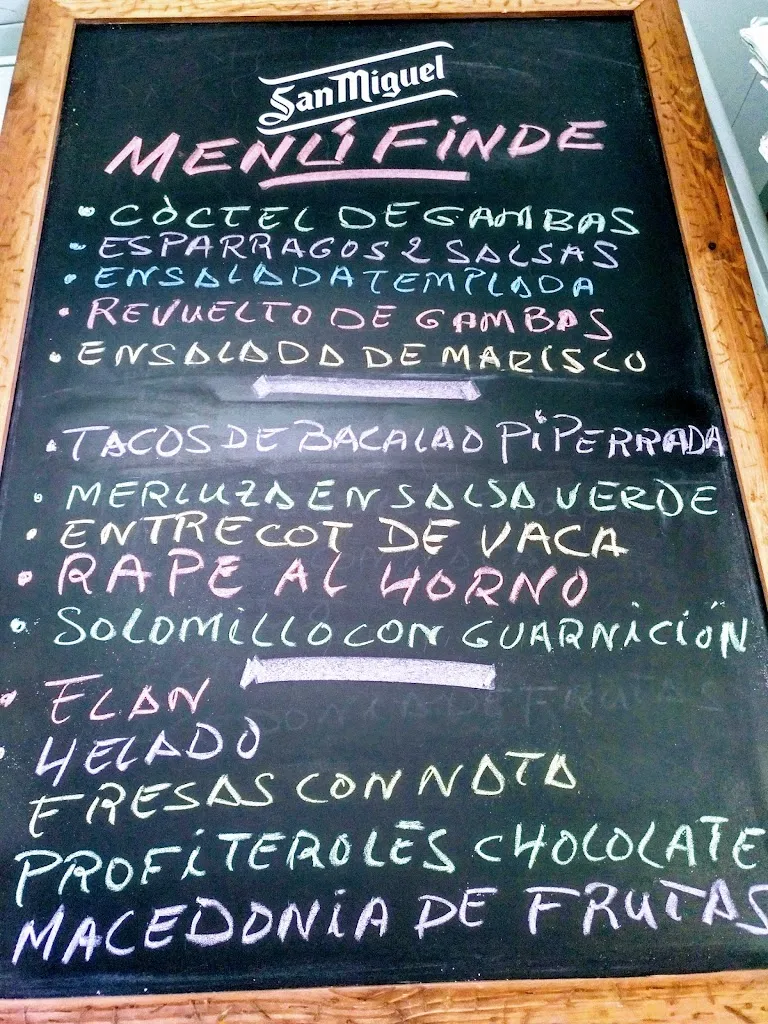 San Miguel
MENÚ FINDE
• CÒCTEL DE GAMBAS
• ESPARRAGOS 2 SALSAS
• ENSALADA TEMPLADA
• REVUELTO DE GAMBAS
• ENSALADA DE MARISCO
• TACOS DE BACALAO PIPERRADA
• MERLUZA EN SALSA VERDE
• ENTRECOT DE VACA
• RAPE AL HORNO
• SOLOMILLO CON GUARNICIÓN
• FLAN
• HELADO
FRESAS CON NATA
PROFITEROLĒS CHOCOLATE
MACEDONIA DE FRUTAS